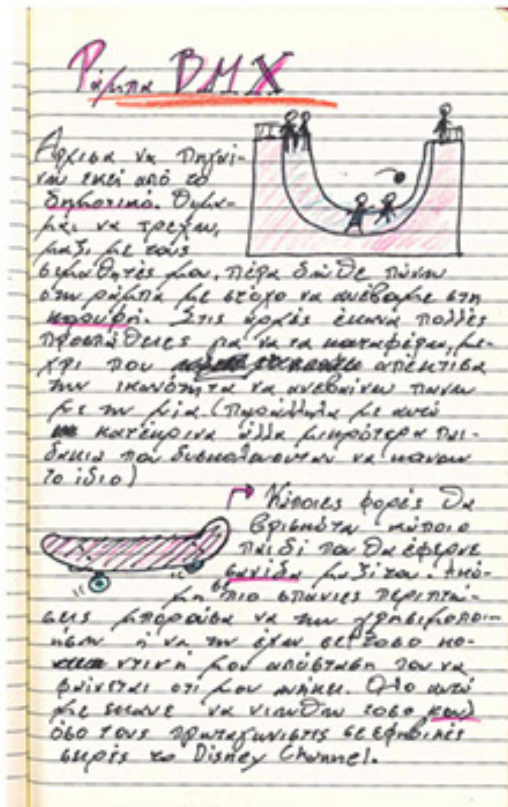 Ράμπα BMX
Άρχισα να πηγαί-
νω εκεί από το
δημοτικό. Θυμά-
μαι να τρέχω,
μαζί με τους
συμαθητές μου, πέρα δώθε πάνω
στην ράμπα με στόχο να ανέβουμε στη
κορυφή. Στις αρχές έκανα πολλές
προσπάθειες για να τα καταφέρω, με-
χρι που απέκτισα
την ικανότητα να ανεβαίνω πάνω
με την μία. (Παράλληλα με αυτό
κατέκρινα άλλα μικρότερα παι-
δάκια που δυσκολεύονταν να κάνουν
το ίδιο)
Κάποιες φορές θα
βρισκόταν κάποιο
παιδί που θα έφερνε
σανίδα μαζί του. Ακό-
μη σε πιο σπάνιες περιπτώ-
σεις μπορούσα να την χρησιμοποι-
ήσω ή να την έχω σε τόσο κο-
ντινή μου απόσταση που να
φαίνεται ότι μου ανήκει. Όλο αυτό
με έκανε να νιώθω τόσο κουλ
όσο τους πρωταγωνιστές σε εφηβικές
σειρές το Disney Channel.